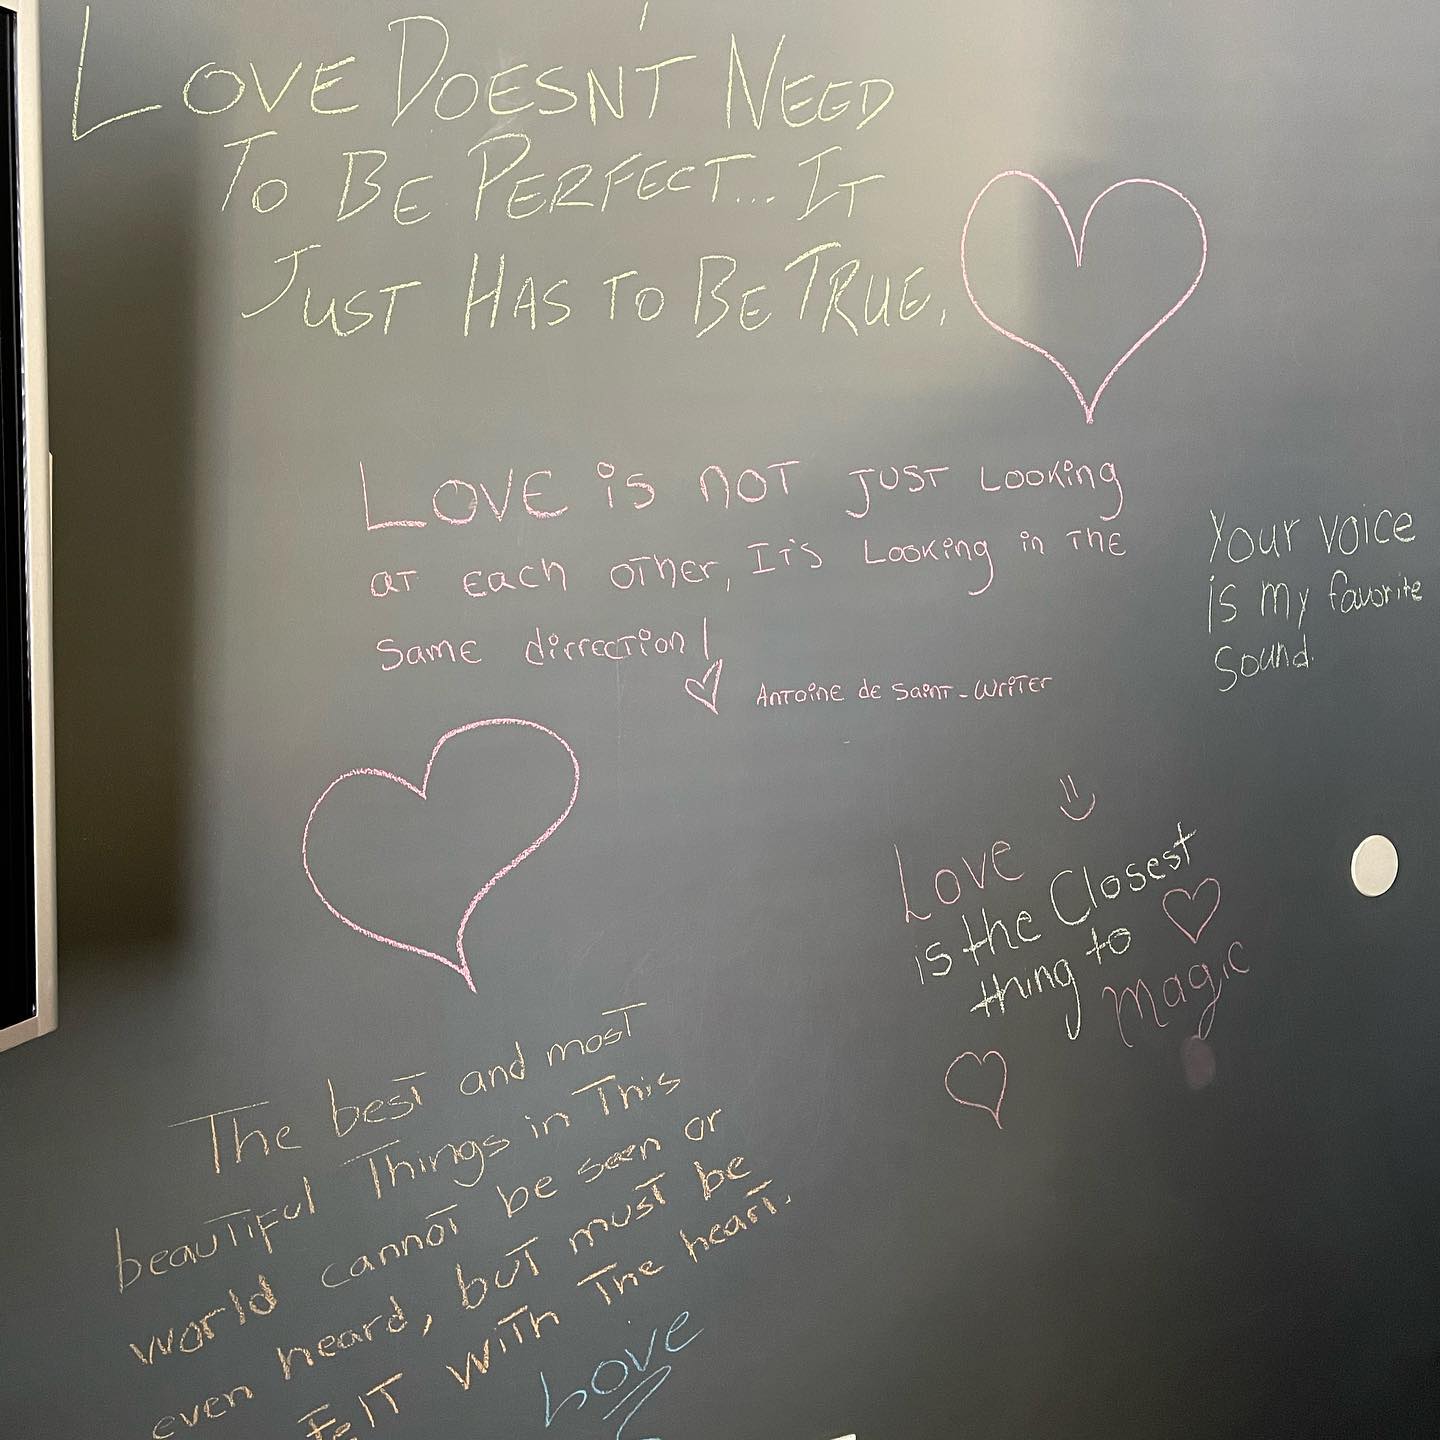 LOVE DOESN'T NEED
TO BE PERFECT... IT
JUST HAS TO BE TRUE.
LOVE is NOT JUST LOOKing
AT EACH OTHEr, IT'S LOOKing in THE
SAME dirrECTion!
ANTOinE dE SAinT-WriTEr
Your voice
is my favorite
Sound.
Love
is the Closest
thing to
Magic
The best and most
beautiful Things in This
world cannot be seen or
even heard, but must be
FelT WiTh The heart.
Love